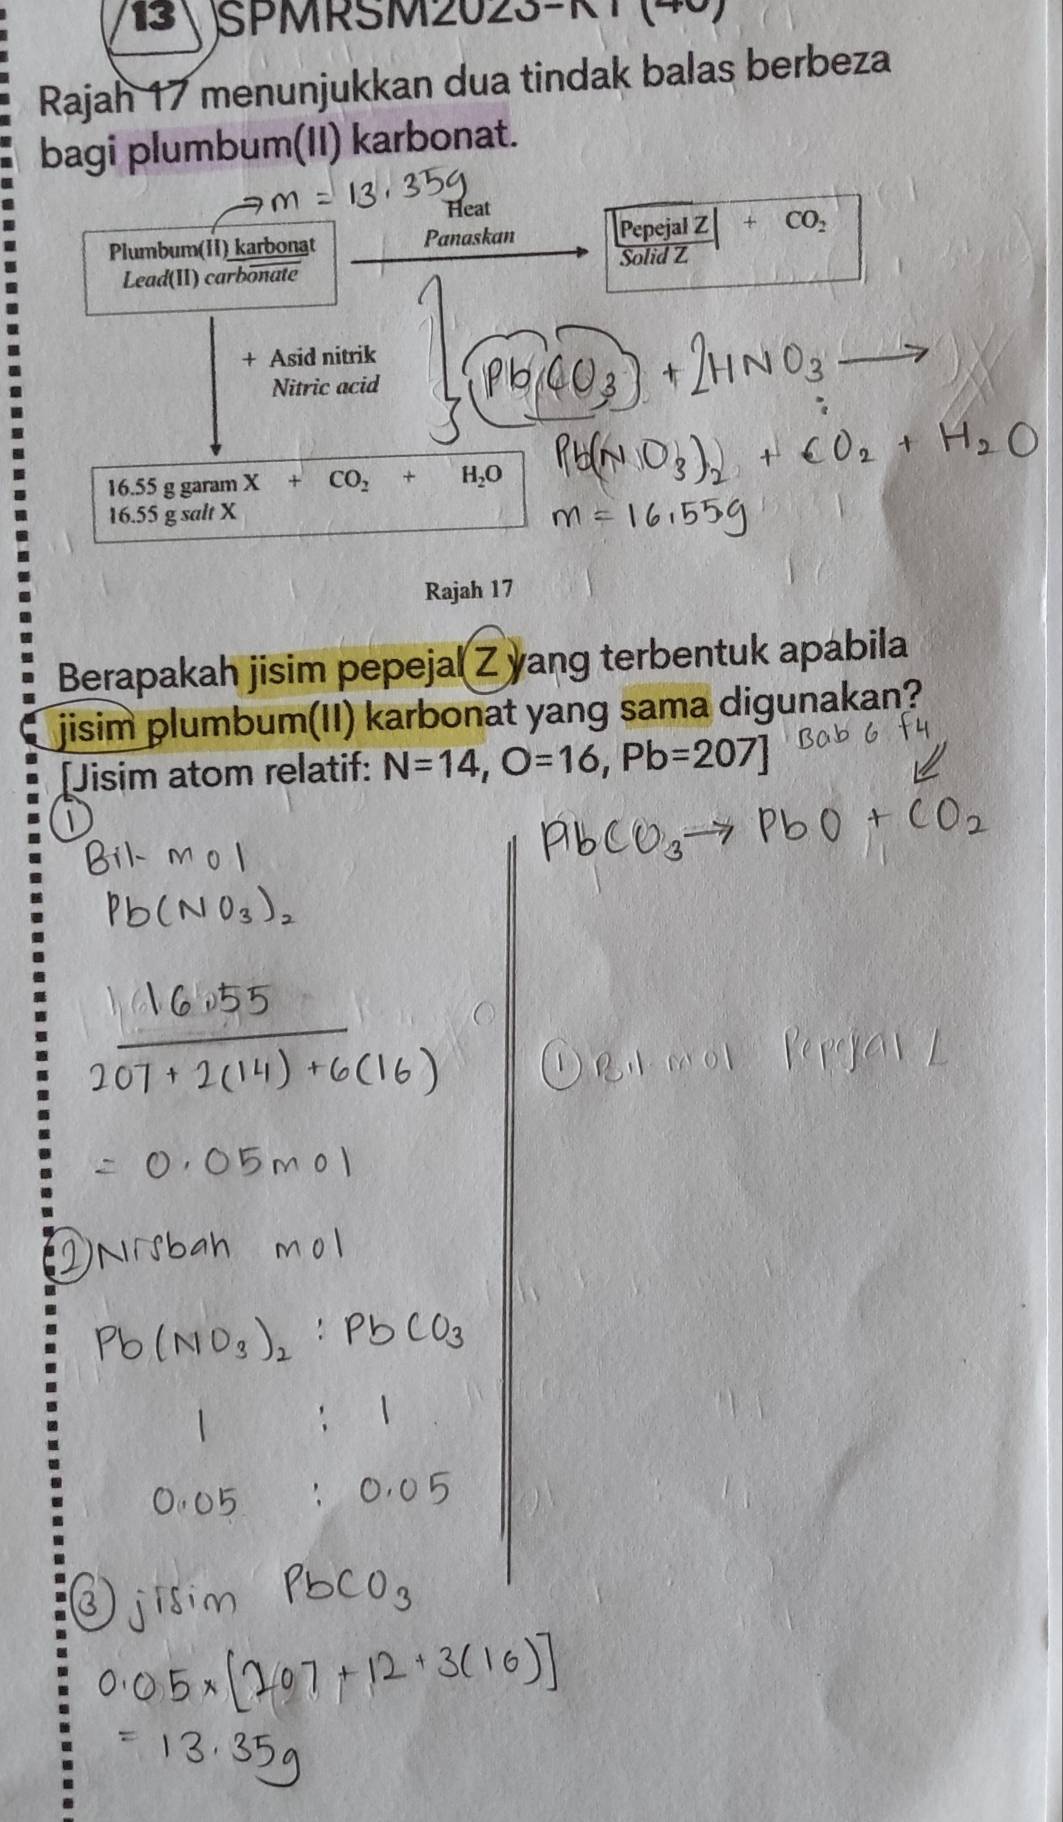 13 SPMRSM2023-K1 (40)
Rajah 17 menunjukkan dua tindak balas berbeza
bagi plumbum(II) karbonat.
→ m = 13.35g
Heat
Panaskan
Plumbum(II) karbonat
Lead(II) carbonate
Pepejal Z + CO₂
Solid Z
+ Asid nitrik
Nitric acid
PbCO₃ + 2HNO₃ →
Pb(NO₃)₂ + CO₂ + H₂O
m = 16.55g
16.55 g garam X + CO₂ + H₂O
16.55 g salt X
Rajah 17
Berapakah jisim pepejal Z yang terbentuk apabila
jisim plumbum(II) karbonat yang sama digunakan?
[Jisim atom relatif: N=14, O=16, Pb=207]
Bab 6 f4
①
Bil. mol
Pb(NO₃)₂
16.55
207 + 2(14) + 6(16)
= 0.05 mol
② Nisbah mol
Pb(NO₃)₂ : PbCO₃
1 : 1
0.05 : 0.05
③ jisim PbCO₃
0.05 × [207 + 12 + 3(16)]
= 13.35g
PbCO₃ → PbO + CO₂
① Bil mol Pepejal Z